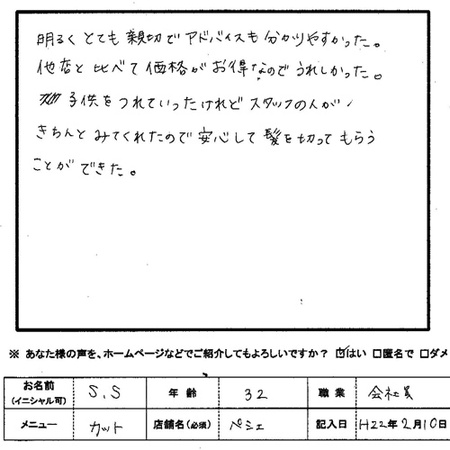 明るく とても 親切で アドバイスも 分かりやすかった。
他店と 比べて 価格が お得なので うれしかった。
子供を つれていったけれど スタッフの人が
きちんと みてくれたので 安心して 髪を切って もらう
ことが できた。
※ あなた様の声を、ホームページなどでご紹介してもよろしいですか? ☑はい □匿名で □ダメ
お名前 (イニシャル可) S.S 年齢 32 職業 会社員
メニュー カット 店舗名(必須) ペシェ 記入日 H22年2月10日